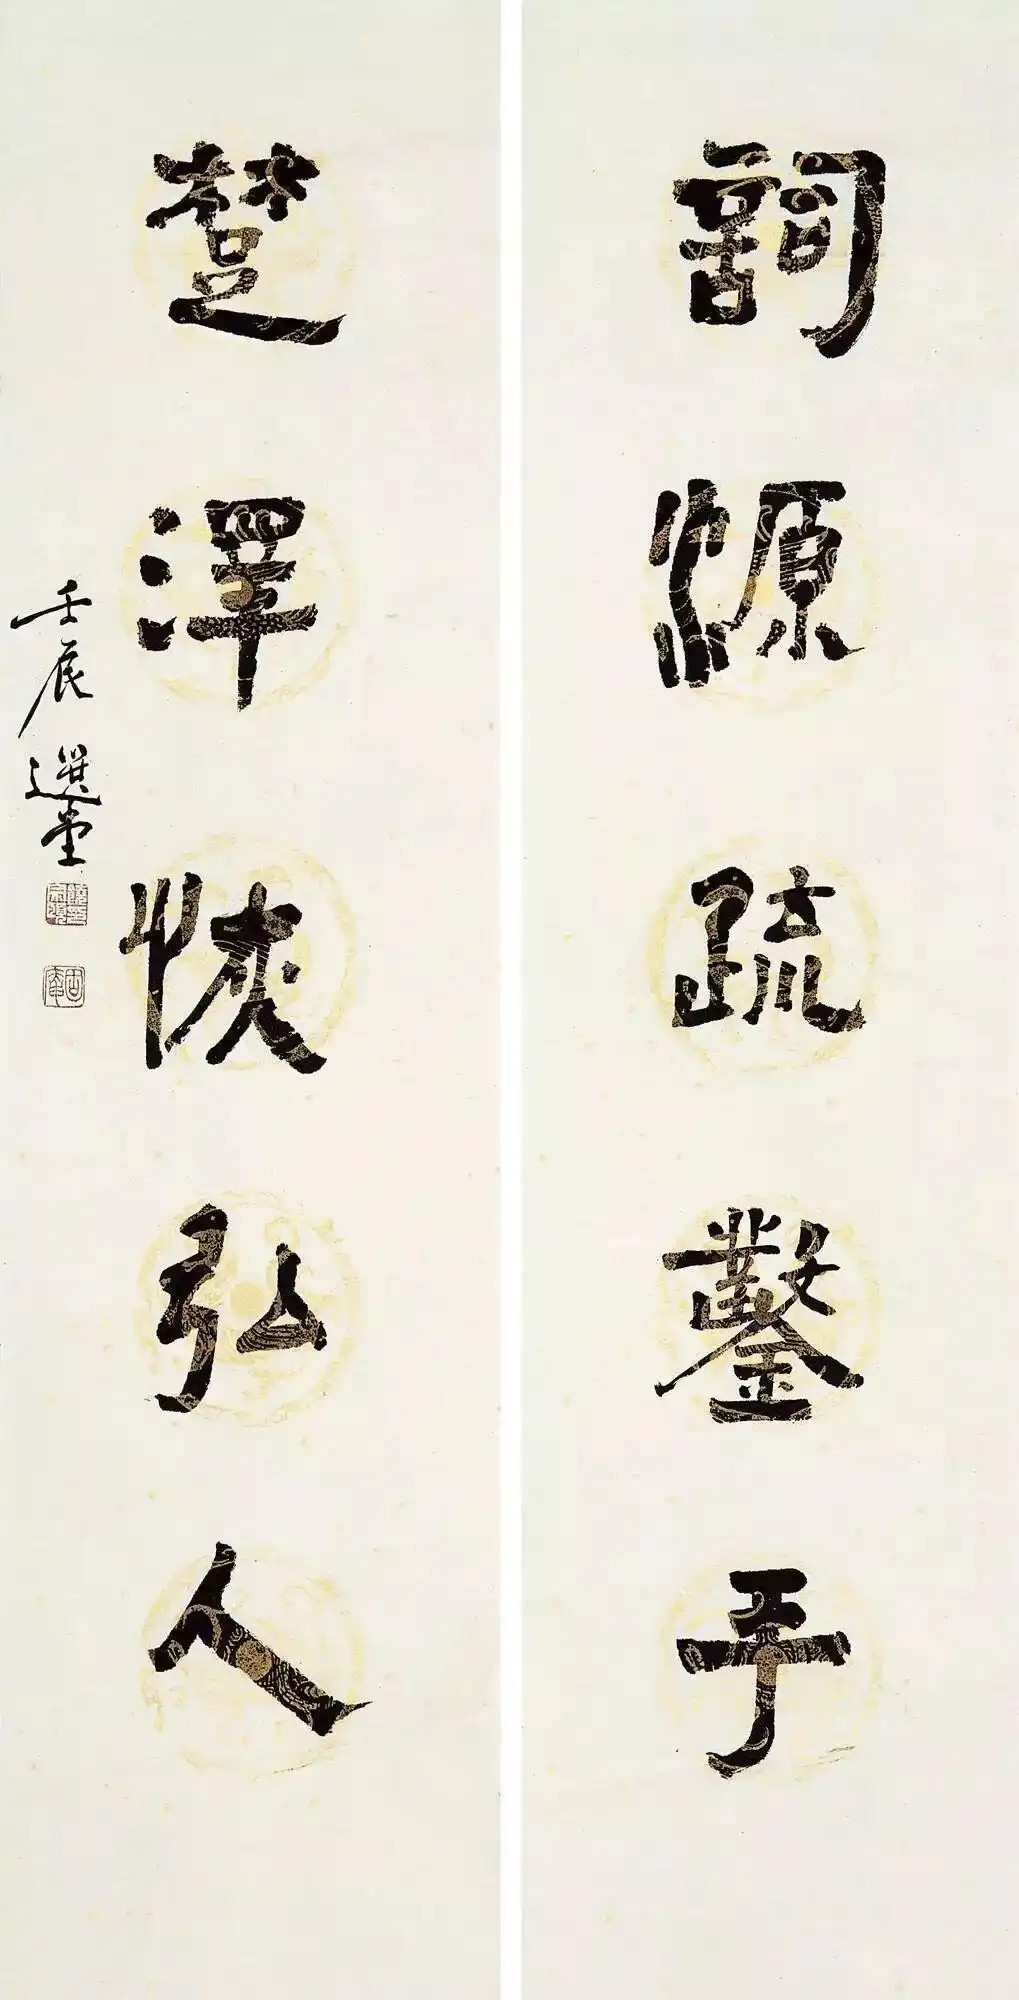 詞源疏鑿手
楚澤恢弘人
壬辰選堂
固庵